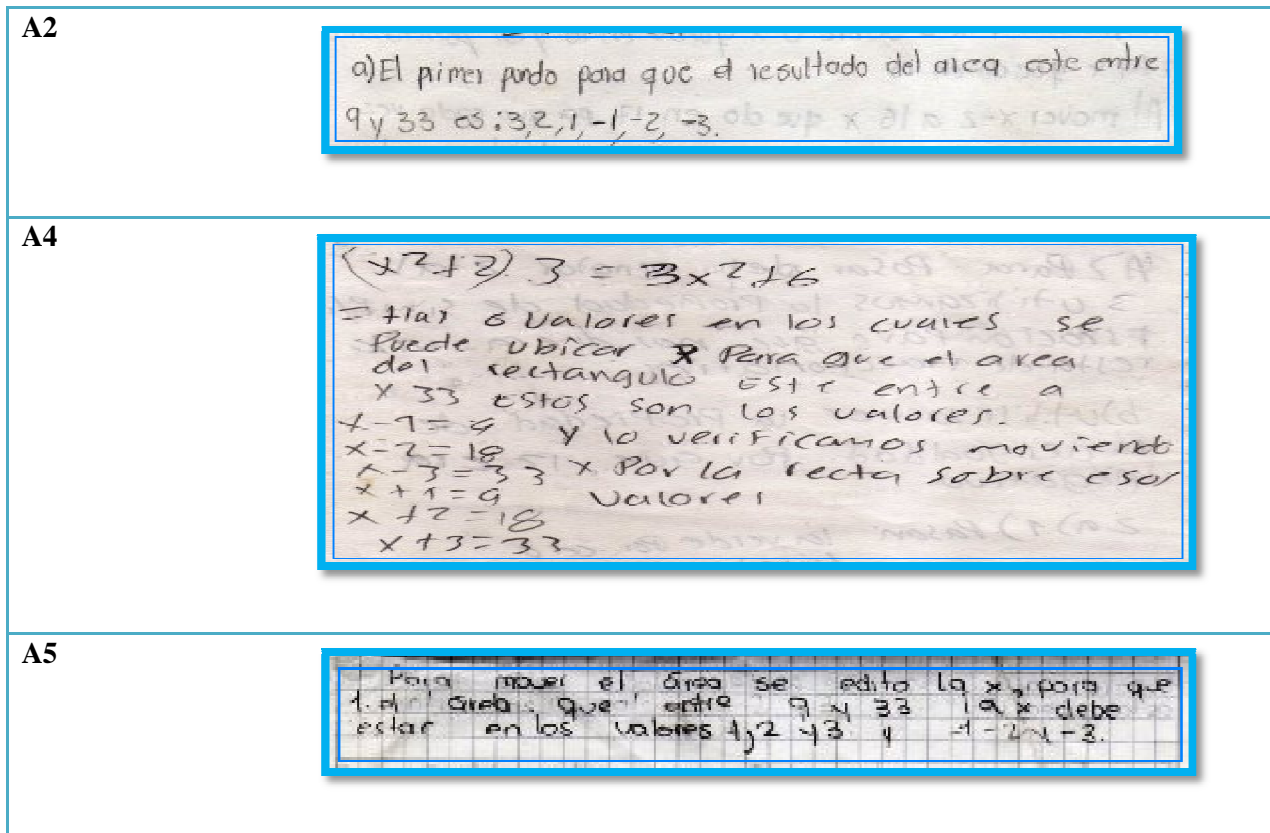 A2
a) El primer punto para que el resultado del area este entre
9 y 33 es: 3, 2, 1, -1, -2, -3.
A4
(x²+2) 3 = 3x²+6
= Hay 6 valores en los cuales se
Puede ubicar x Para que el area
del rectangulo Este entre a
x 33 Estos son los valores.
x-1=9 y lo verificamos moviendo
x-2=18 x Por la recta sobre esos
x-3=33 valores
x+1=9
x+2=18
x+3=33
A5
Para mover el área se edito la x, para que
1. el área que entre 9 y 33 la x debe
estar en los valores 1, 2 y 3 y -1 -2 y -3.